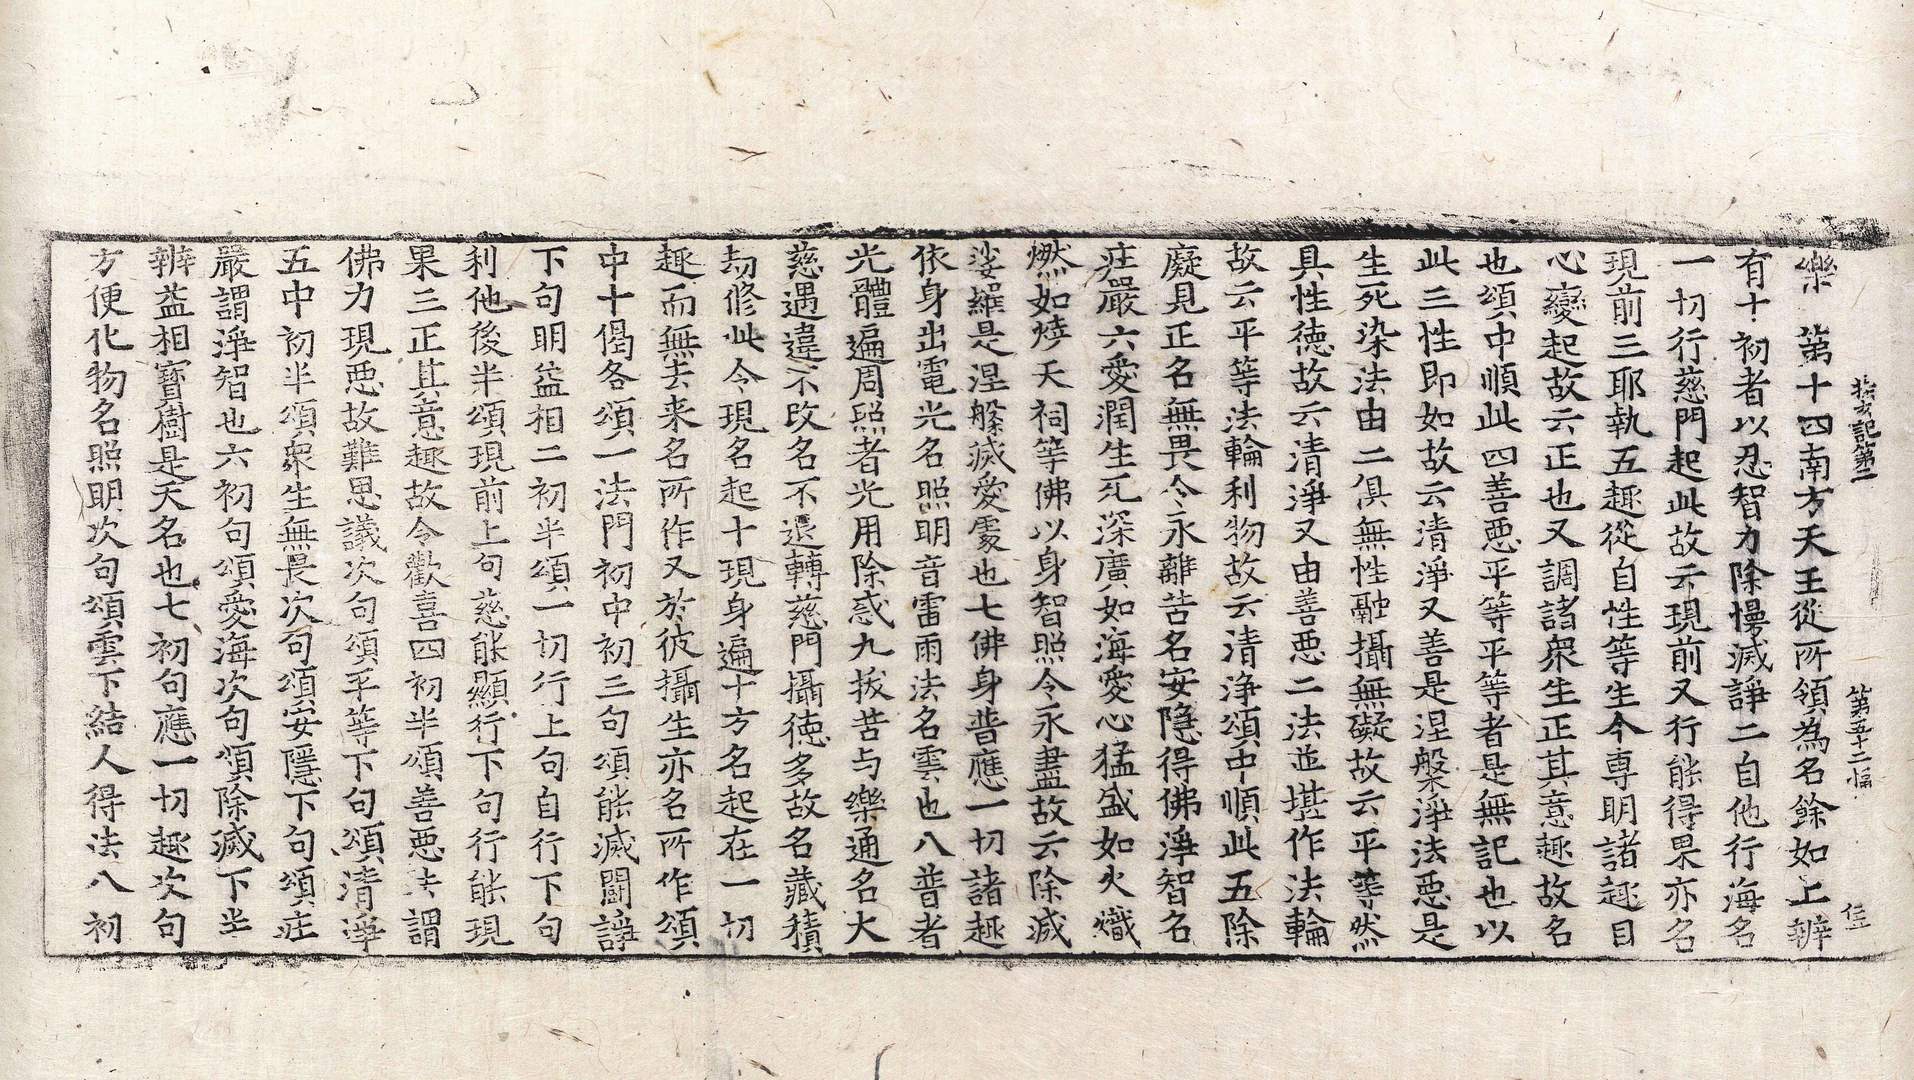 探玄記第二 第五十二幅 仕
樂 第十四南方天王從所領為名餘如上辨
有十初者以忍智力除慢滅諍二自他行海名
一切行慈門起此故云現前又行能得果亦名
現前三耶執五趣從自性等生今專明諸趣自
心變起故云正也又調諸衆生正其意趣故名
也頌中順此四善惡平等平等者是無記也以
此三性即如故云清淨又善是涅槃淨法惡是
生死染法由二俱無性融攝無礙故云平等然
具性德故云清淨又由善惡二法並堪作法輪
故云平等法輪利物故云清淨頌中順此五除
癡見正名無畏令永離苦名安隱得佛淨智名
莊嚴六愛潤生死深廣如海愛心猛盛如火熾
燃如燒天祠等佛以身智照令永盡故云除滅
娑羅是涅槃滅愛處也七佛身普應一切諸趣
依身出電光名照明音雷雨法名雲也八普者
光體遍周照者光用除惑九拔苦与樂通名大
慈遇違不改名不退轉慈門攝德多故名藏積
劫修此令現名起十現身遍十方名起在一切
趣而無去来名所作又於彼攝生亦名所作頌
中十偈各頌一法門初中初三句頌能滅鬪諍
下句明益相二初半頌一切行上句自行下句
利他後半頌現前上句慈能顯行下句行能現
果三正其意趣故令歡喜四初半頌善惡法謂
佛力現惡故難思議次句頌平等下句頌清淨
五中初半頌衆生無畏次句頌安隱下句頌莊
嚴謂淨智也六初句頌愛海次句頌除滅下半
辨益相寶樹是天名也七初句應一切趣次句
方便化物名照明次句頌雲下結人得法八初